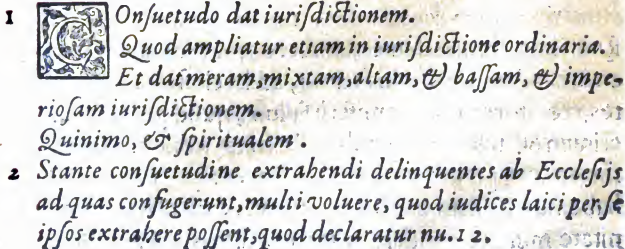 1 COnſuetudo dat iuriſdictionem.
Quod ampliatur etiam in iuriſdictione ordinaria.
Et dat meram, mixtam, altam, & baſſam, & impe-
rioſam iuriſdictionem.
Quinimo, & ſpiritualem.
2 Stante conſuetudine extrahendi delinquentes ab Eccleſijs
ad quas confugerunt, multi voluere, quod iudices laici per ſe
ipſos extrahere poſſent, quod declaratur nu. 12.